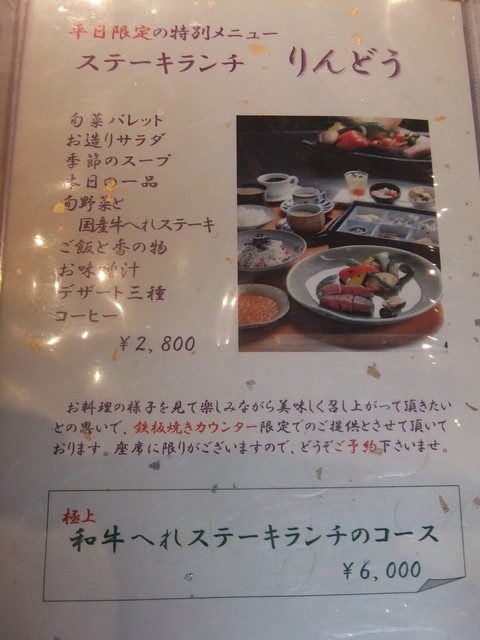 平日限定の特別メニュー
ステーキランチ りんどう
旬菜パレット
お造りサラダ
季節のスープ
本日の一品
旬野菜と
国産牛へれステーキ
ご飯と香の物
お味噌汁
デザート三種
コーヒー
¥2,800
お料理の様子を見て楽しみながら美味しく召し上がって頂きたい
との思いで、鉄板焼きカウンター限定でのご提供とさせて頂いて
おります。座席に限りがございますので、どうぞご予約下さいませ。
極上
和牛へれステーキランチのコース
¥6,000